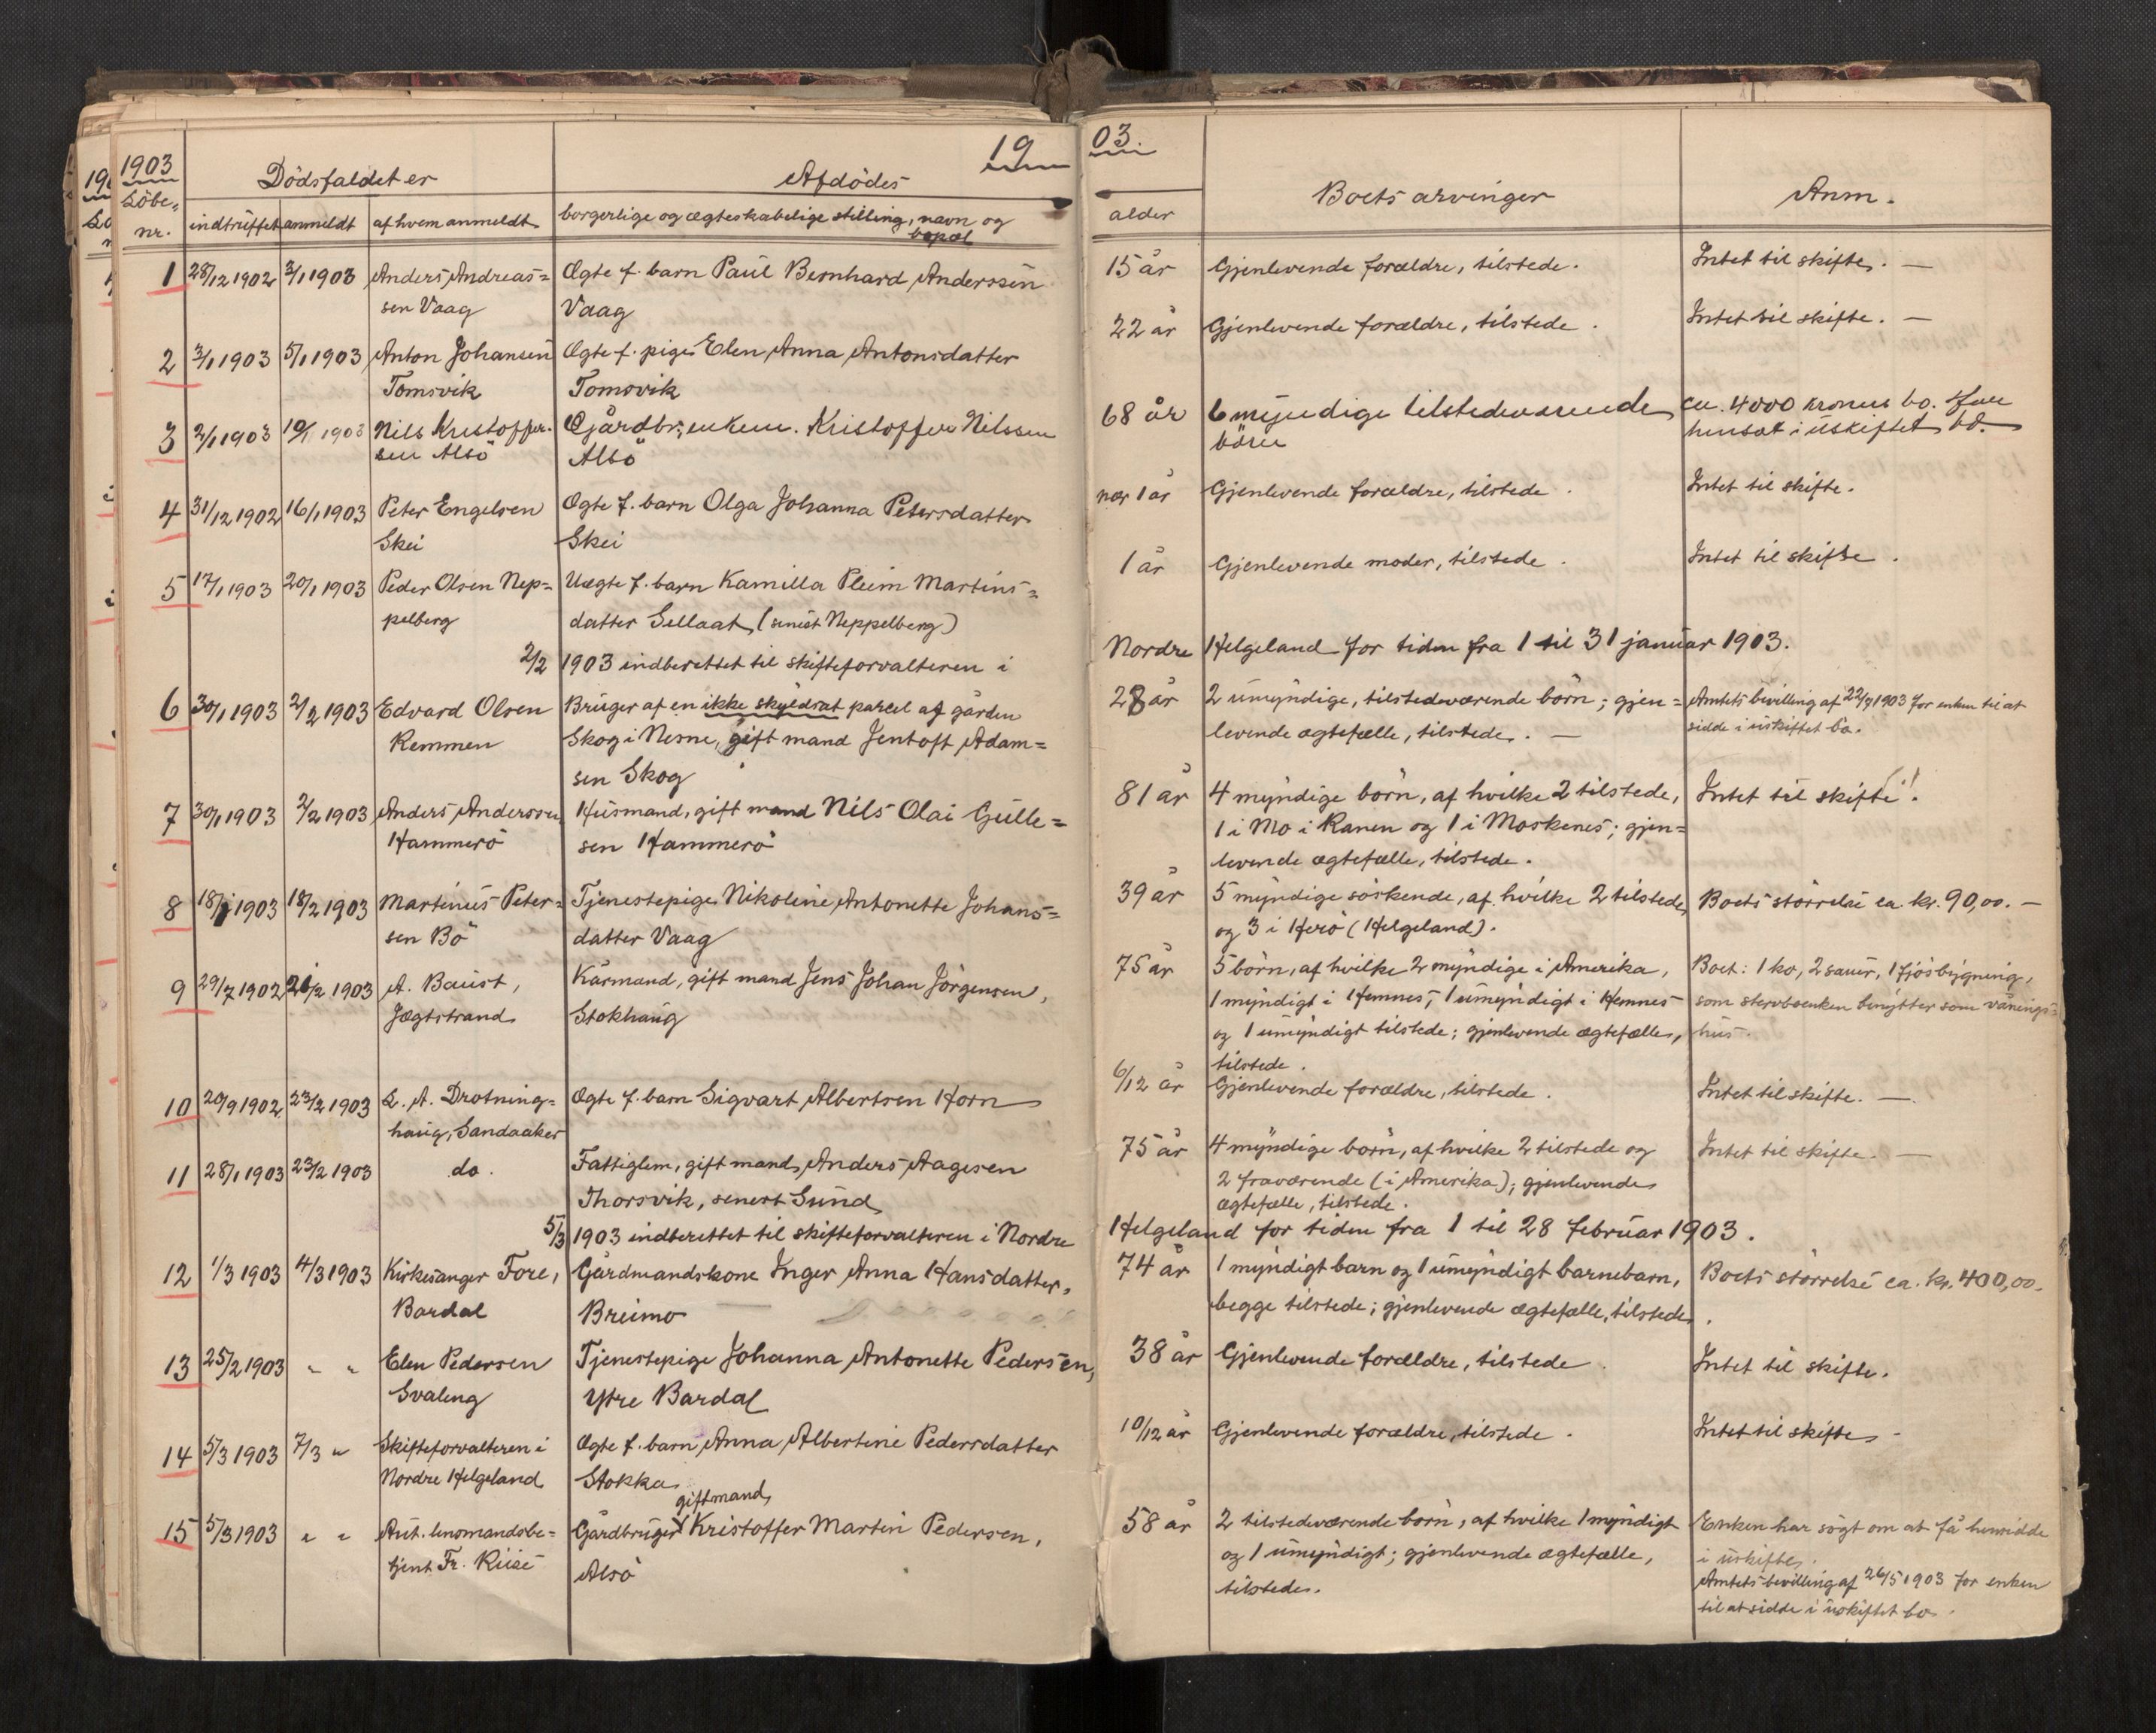 1903
19
03.
Löbe-
nr.
Dödsfaldet er
Afdödes
Boets arvinger
Anm.
indtruffet
anmeldt
af hvem anmeldt
borgerlige og ægteskabelige stilling, navn og
bopæl
alder
1 28/12 1902 3/1 1903 Anders Andreas= Ægte f. barn Paul Bernhard Anderssen 15 år Gjenlevende forældre, tilstede. Intet til skifte. —
sen Vaag Vaag
2 3/1 1903 5/1 1903 Anton Johansen Ægte f. pige Elen Anna Antonsdatter 22 år Gjenlevende forældre, tilstede. Intet til skifte. —
Tomsvik Tomsvik
3 2/1 1903 10/1 1903 Nils Kristoffer- Gårdbr., enkem. Kristoffer Nilssen 68 år 6 myndige tilstedeværende ca. 4000 kroners bo.
sen Alsö Alsö börn hensat i uskiftet bo.
4 31/12 1902 16/1 1903 Peter Engelsen Ægte f. barn Olga Johanna Petersdatter nær 1 år Gjenlevende forældre, tilstede. Intet til skifte.
Skei Skei
5 17/1 1903 20/1 1903 Peder Olsen Nep= Uægte f. barn Kamilla Pleim Martins= 1 år Gjenlevende moder, tilstede. Intet til skifte.
pelberg datter Sellaat (senest Neppelberg)
2/2 1903 indberettet til skifteforvalteren i Nordre Helgeland for tiden fra 1 til 31 januar 1903.
6 30/1 1903 2/2 1903 Edvard Olsen Bruger af en ikke skyldsat parcel af gården 28 år 2 umyndige, tilstedeværende börn; gjen= Amtets bevilling af 22/9 1903 for enken til at
Remmen Skog i Nesne, gift mand Jentoft Adam= levende ægtefælle, tilstede. — sidde i uskiftet bo.
sen Skog
7 30/1 1903 2/2 1903 Anders Anderssen Husmand, gift mand Nils Olai Gulle= 81 år 4 myndige börn, af hvilke 2 tilstede, Intet til skifte!
Hammerö sen Hammerö 1 i Mo i Ranen og 1 i Moskenes; gjen=
levende ægtefælle, tilstede.
8 18/1 1903 18/2 1903 Martinus Peter= Tjenestepige Nikoline Antonette Johans= 39 år 5 myndige söskende, af hvilke 2 tilstede, Boets störrelse ca. kr. 90,00. —
sen Bö datter Vaag og 3 i Herö (Helgeland).
9 29/7 1902 21/2 1903 A. Baust, Kårmand, gift mand Jens Johan Jörgensen, 75 år 5 börn, af hvilke 2 myndige i Amerika, Boet: 1 ko, 2 sauer, 1 fjösbygning,
Jægtstrand Stokhaug 1 myndigt i Hemnes, 1 umyndigt i Hemnes som stervboenken benytter som vånings=
og 1 umyndigt tilstede; gjenlevende ægtefælle, hus.
tilstede.
10 20/9 1902 23/2 1903 L. A. Drotning= Ægte f. barn Sigvart Albertsen Horn 6/12 år Gjenlevende forældre, tilstede. Intet til skifte. —
haug, Sandaaker
11 28/1 1903 23/2 1903 do. Fattiglem, gift mand, Anders Aagesen 75 år 4 myndige börn, af hvilke 2 tilstede og Intet til skifte. —
Thorsvik, senest Sund 2 fraværende (i Amerika); gjenlevende
ægtefælle, tilstede.
5/3 1903 indberettet til skifteforvalteren i Nordre Helgeland for tiden fra 1 til 28 februar 1903.
12 1/3 1903 4/3 1903 Kirkesanger Fore, Gårdmandskone Inger Anna Hansdatter, 74 år 1 myndigt barn og 1 umyndigt barnebarn, Boets störrelse ca. kr. 400,00.
Bardal Breimo begge tilstede; gjenlevende ægtefælle, tilstede.
13 25/2 1903 " " Elen Pedersen Tjenestepige Johanna Antonette Pedersen, 38 år Gjenlevende forældre, tilstede. Intet til skifte.
Svaleng Ytre Bardal
14 5/3 1903 7/3 " Skifteforvalteren i Ægte f. barn Anna Albertine Pedersdatter 10/12 år Gjenlevende forældre, tilstede. Intet til skifte.
Nordre Helgeland Stokka
gift mand,
15 5/3 1903 " " Aut. lensmandsbe= Gårdbruger Kristoffer Martin Pedersen, 58 år 2 tilstedeværende börn, af hvilke 1 myndigt Enken har sögt om at få hensidde
tjent Fr. Riise Alsö og 1 umyndigt; gjenlevende ægtefælle, i uskifte.
tilstede. Amtets bevilling af 26/5 1903 for enken
til at sidde i uskiftet bo.